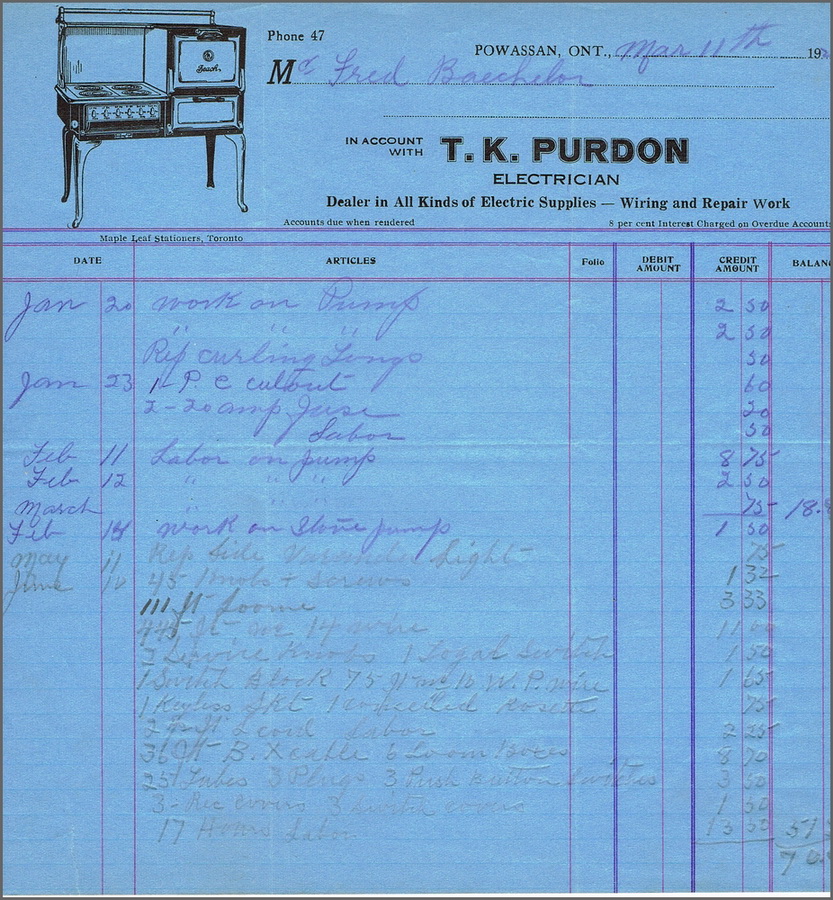 Beach
Phone 47
POWASSAN, ONT., Mar 11th 19
Mr Fred Baechelor
IN ACCOUNT WITH T. K. PURDON
ELECTRICIAN
Dealer in All Kinds of Electric Supplies — Wiring and Repair Work
Accounts due when rendered 8 per cent Interest Charged on Overdue Accounts
Maple Leaf Stationers, Toronto
DATE ARTICLES Folio DEBIT AMOUNT CREDIT AMOUNT BALANC
Jan 20 work on Pump 2 50
" " " 2 50
Rep curling Tongs 50
Jan 23 1 P. C cutout 60
2-20 amp Fuse 20
Labor 50
Feb 11 Labor on pump 8 75
Feb 12 " " " 2 50
March 75 18.
Feb 14 work on Stone pump 1 50
May 11 Rep Side Varanda Light 75
June 10 45 Knobs + Screws 1 32
111 ft Loome 3 33
445 ft no 14 wire 11 00
Knobs 1 Togal Switch 1 50
1 Switch Block 75 ft no 16 W.P. wire 1 65
1 Keyless Skt 1 concelled Rosette 75
2 ft L cord Labor 2 25
36 ft B.X cable 6 Loom Boxes 8 70
25 Tubes 3 Plugs 3 Push Button Switches 3 50
3- Rec covers 3 Switch covers 1 50
17 Hours Labor 13 50 51
7